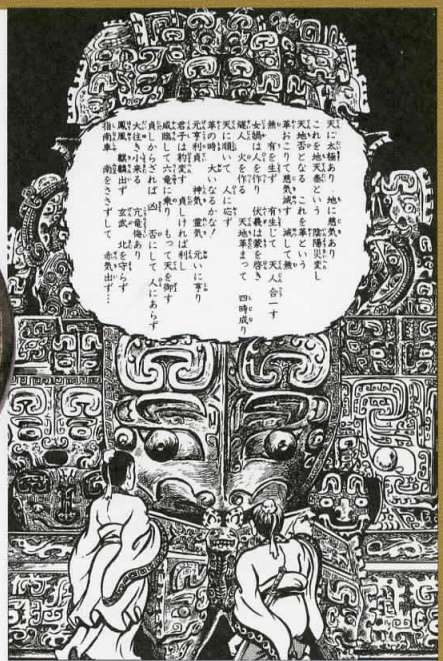 天に太極あり　地に慈気あり
これを地天泰という　陰陽災変し
天地否となる　これを革という
革おこりて慈気滅す　滅して無
無　有を生ず　有生じて　天人合一す
女媧は人を作り　伏羲は蒙を啓き
燧人　火を作る　天地革まって　四時成り
天に順いて　人に応ず
革の時　大いなるかな！
元亨利貞　神気　霊気　元いに亨り
君子は豹変す　貞しければ利し
咸臨して六竜に乗り　もって天を御す
貞しからざれば　凶　否にして　人にあらず
大往き小来る　亢竜悔あり
鳳凰　麒麟出ず　玄武　北を守らず
指南車　南をささずして　赤気出ず…